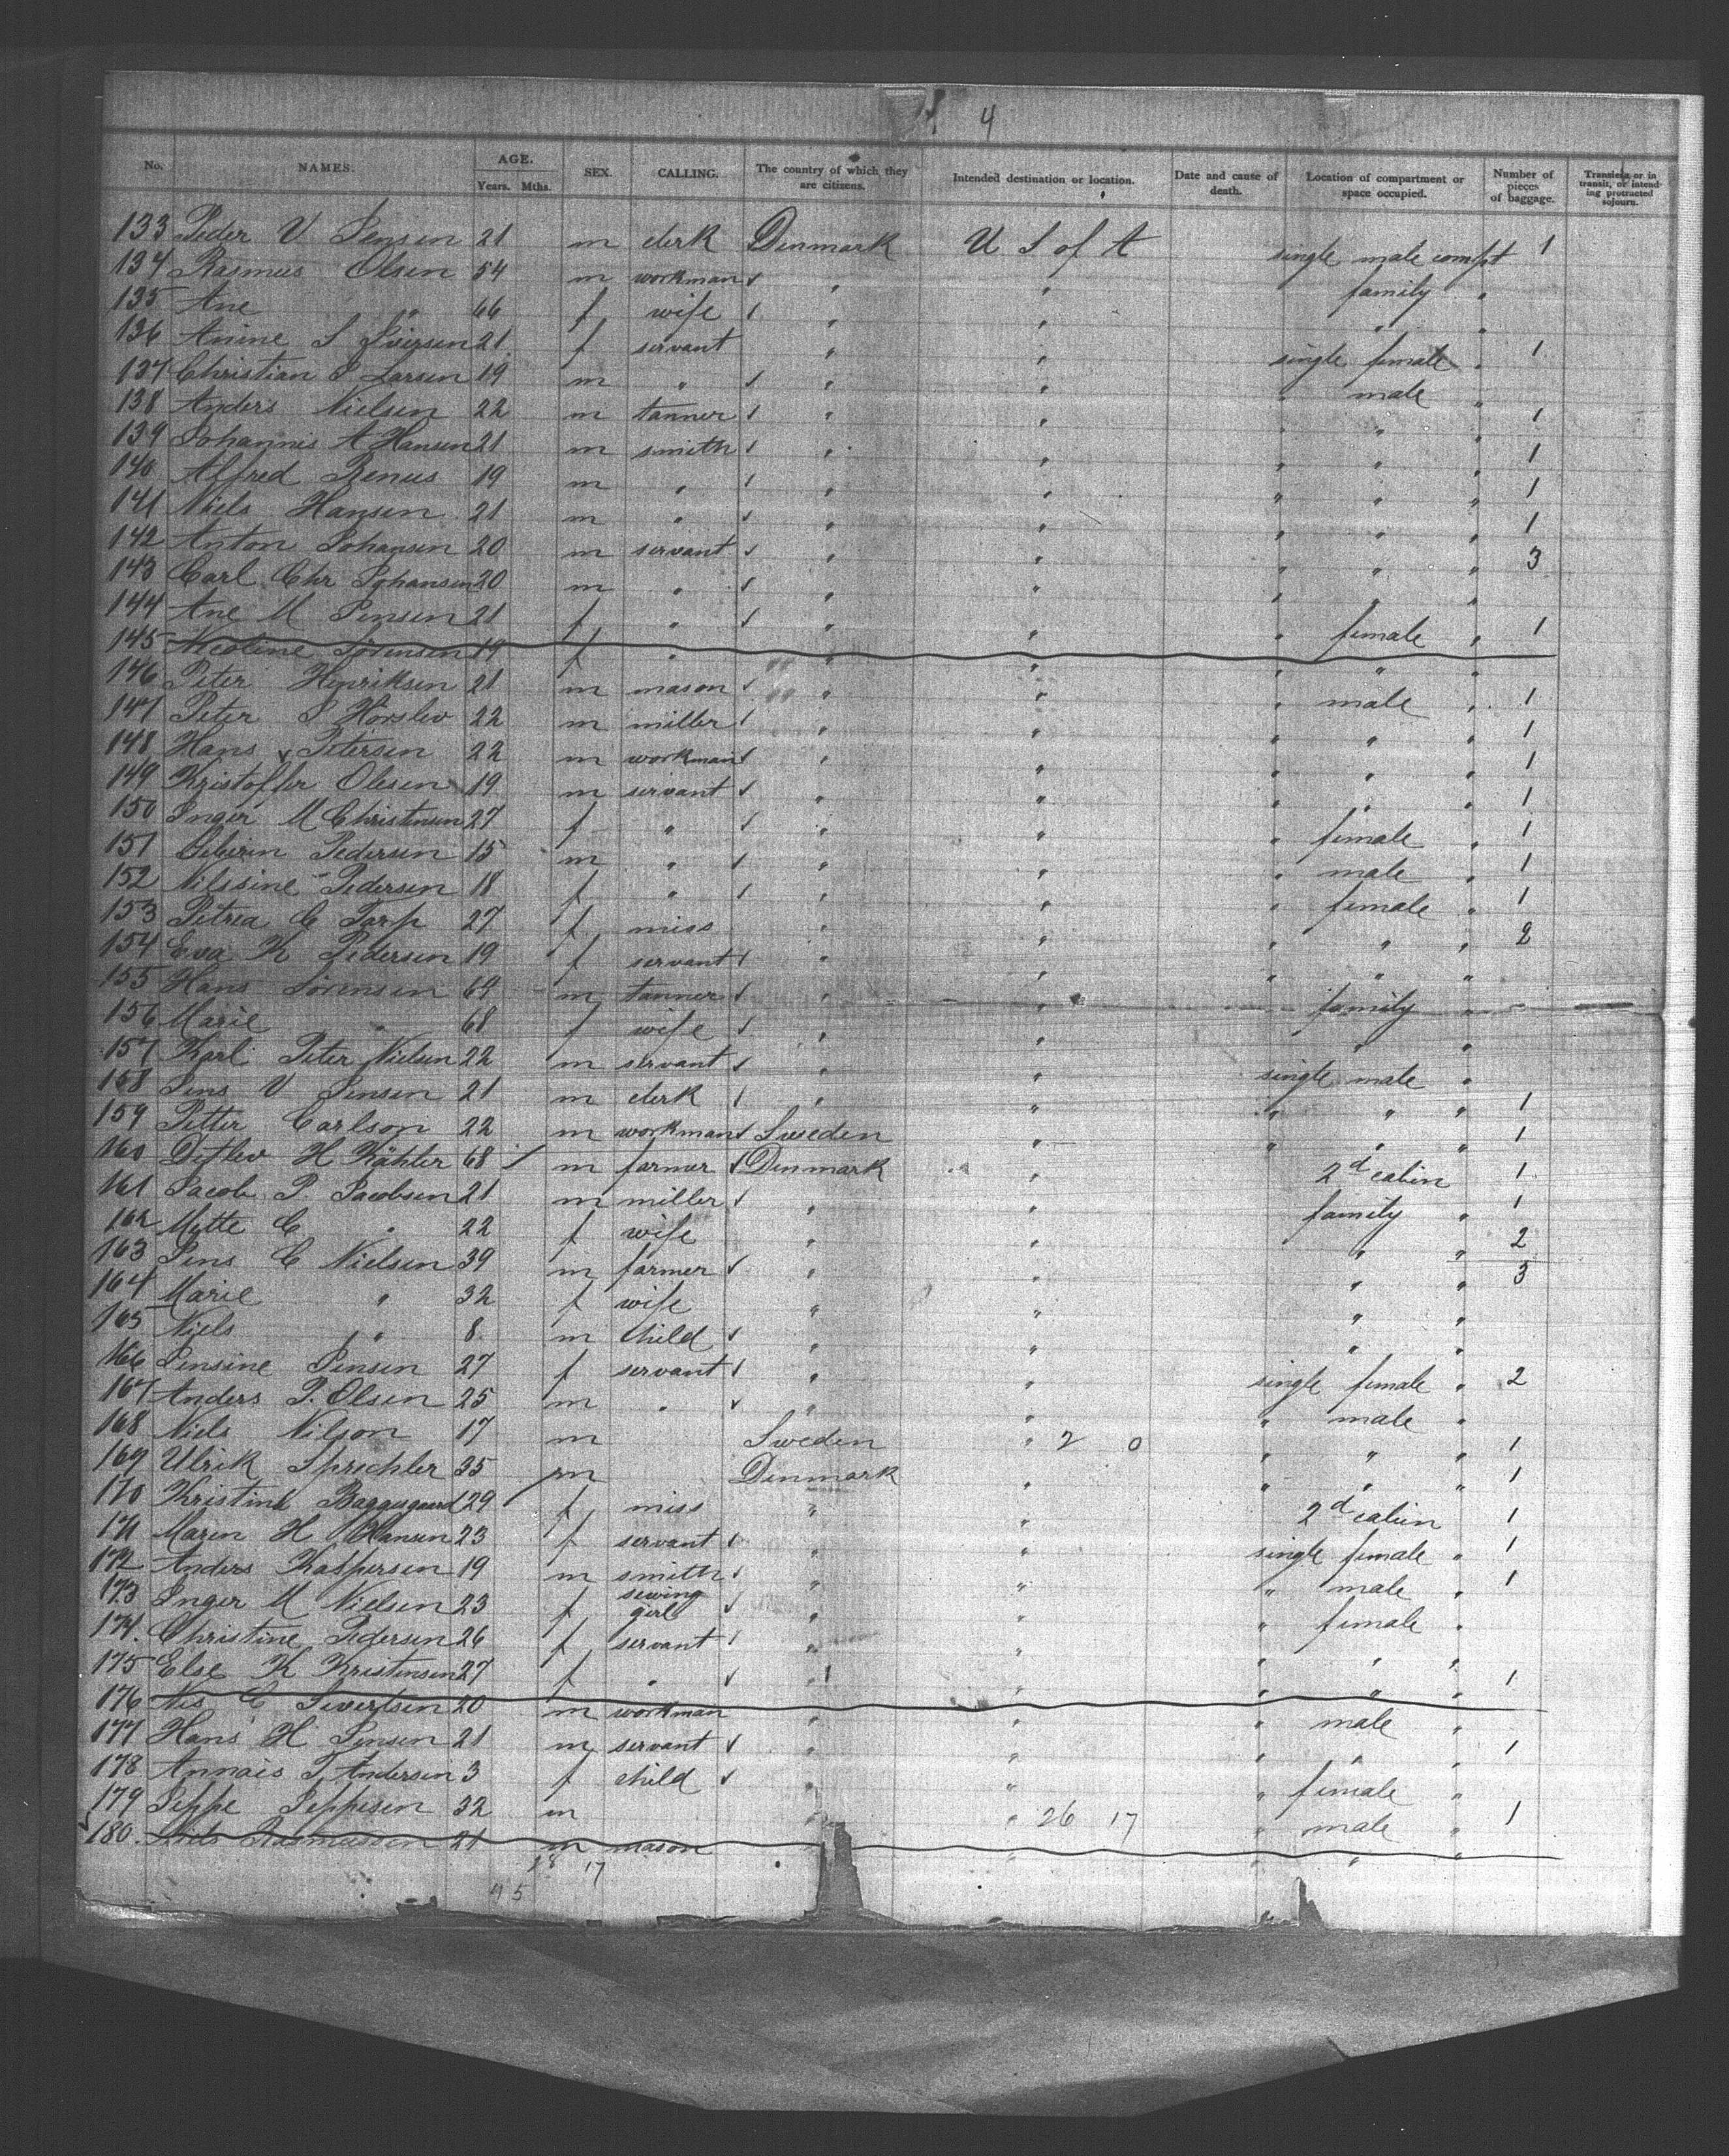 4
No. NAMES. AGE. Years. Mths. SEX. CALLING. The country of which they are citizens. Intended destination or location. Date and cause of death. Location of compartment or space occupied. Number of pieces of baggage. Transients or in transit, or intending protracted sojourn.
133 Peder V Jensen 21 m clerk Denmark U S of A single male compt 1
134 Rasmus Olsen 54 m workman " " family "
135 Ane " 66 f wife " " " "
136 Anine S Iversen 21 f servant " " single female " 1
137 Christian P Larsen 19 m " " " " male "
138 Anders Nielsen 22 m tanner " " " " " 1
139 Johannis A Hansen 21 m smith " " " " " 1
140 Alfred Renus 19 m " " " " " " 1
141 Niels Hansen 21 m " " " " " " 1
142 Anton Johansen 20 m servant " " " " " 3
143 Carl Chr Johansen 20 m " " " " " "
144 Ane M Jensen 21 f " " " " female " 1
145 Nicoline Sörensen 19 f " " " " " "
146 Peter Henriksen 21 m mason " " " male " 1
147 Peter S Hörslev 22 m miller " " " " " 1
148 Hans Petersen 22 m workman " " " " " 1
149 Kristoffer Olesen 19 m servant " " " " " 1
150 Inger M Christensen 27 f " " " " female " 1
151 Pedersen 15 m " " " " male " 1
152 Nilssine Pedersen 18 f " " " " female " 1
153 Petrea C Tarp 27 f miss " " " " " 2
154 Eva K Pedersen 19 f servant " " " " "
155 Hans Sörensen 64 m tanner " " family "
156 Marie " 68 f wife " " " "
157 Karl Peter Nielsen 22 m servant " " single male "
158 Jens V Jensen 21 m clerk " " " " " 1
159 Petter Carlson 22 m workman Sweden " " " " 1
160 Detlev H Kähler 68 m farmer Denmark " 2d cabin 1
161 Jacob P. Jacobsen 21 m miller " " family " 1
162 Mette C " 22 f wife " " " " 2
163 Jens C Nielsen 39 m farmer " " " " 3
164 Marie " 32 f wife " " " "
165 Niels " 8 m child " " " "
166 Jensine Jensen 27 f servant " " single female " 2
167 Anders P. Olsen 25 m " " " " male "
168 Niels Nilson 17 m Sweden " 2 0 " " " 1
169 Ulrik Sprechler 35 m Denmark " " " " 1
170 Kristine Baggesgaard 29 f miss " " 2d cabin 1
171 Maren H Hansen 23 f servant " " single female " 1
172 Anders Kaspersen 19 m smith " " " male " 1
173 Inger M Nielsen 23 f sewing girl " " " female "
174. Christine Pedersen 26 f servant " " " " "
175 Else K Kristensen 27 f " " " " " " 1
176 Nis C Sivertsen 20 m workman " " " male "
177 Hans H Jensen 21 m servant " " " " " 1
178 Annais T Andersen 3 f child " " " female "
179 Jeppe Jeppesen 32 m " " 26 17 " male " 1
180. Rasmussen 21 m mason " " " "
18 17
95